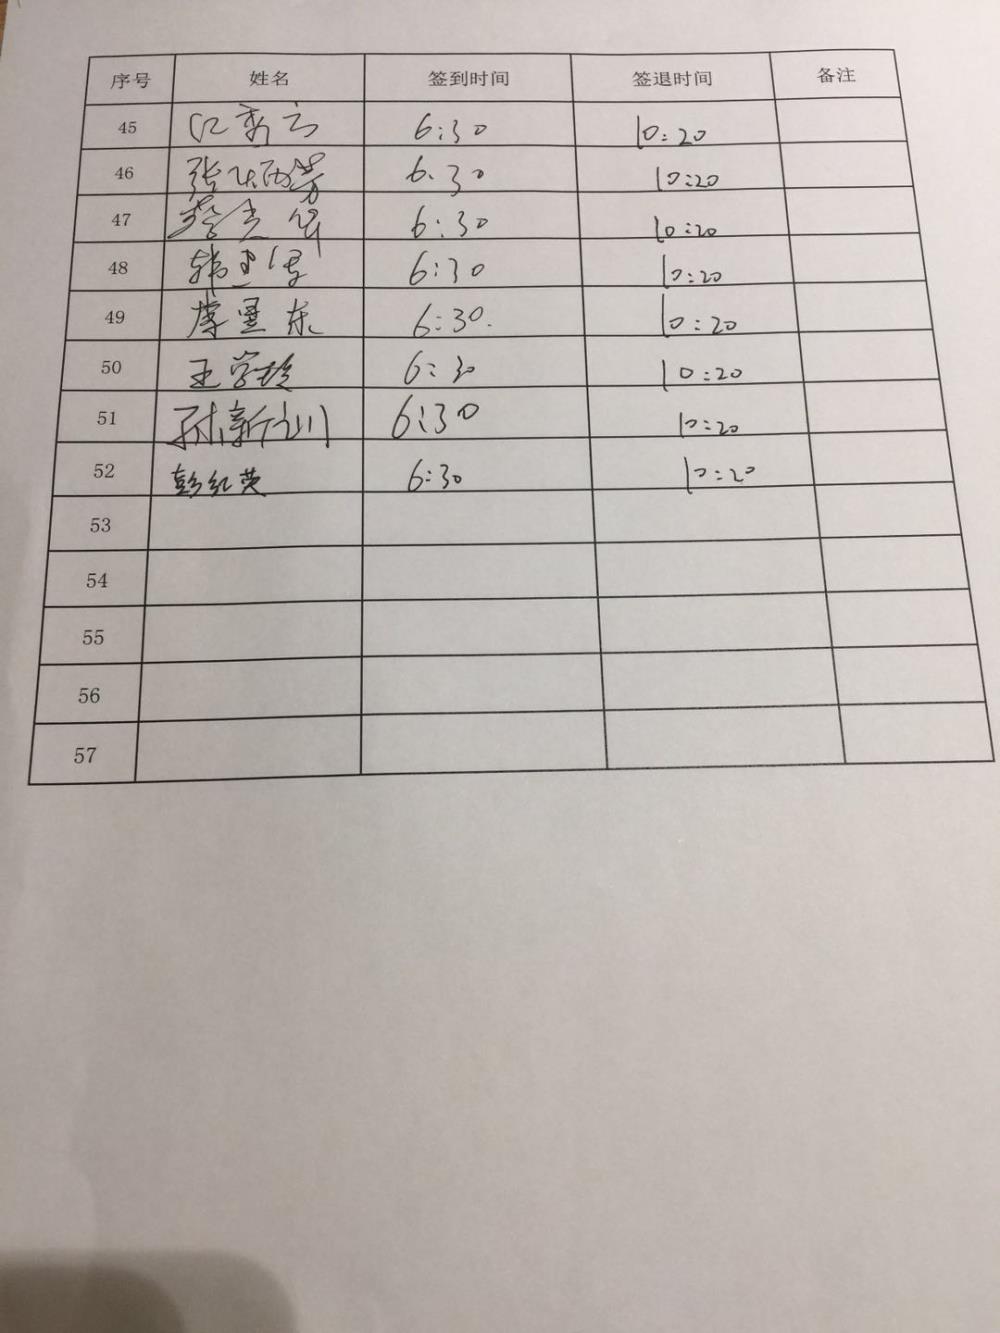 序号 姓名 签到时间 签退时间 备注
45 江秀云 6:30 10:20
46 6.30 10:20
47 6:30 10:20
48 6:30 10:20
49 6:30. 10:20
50 王学玲 6:30 10:20
51 6:30 10:20
52 彭红英 6:30 10:20
53
54
55
56
57